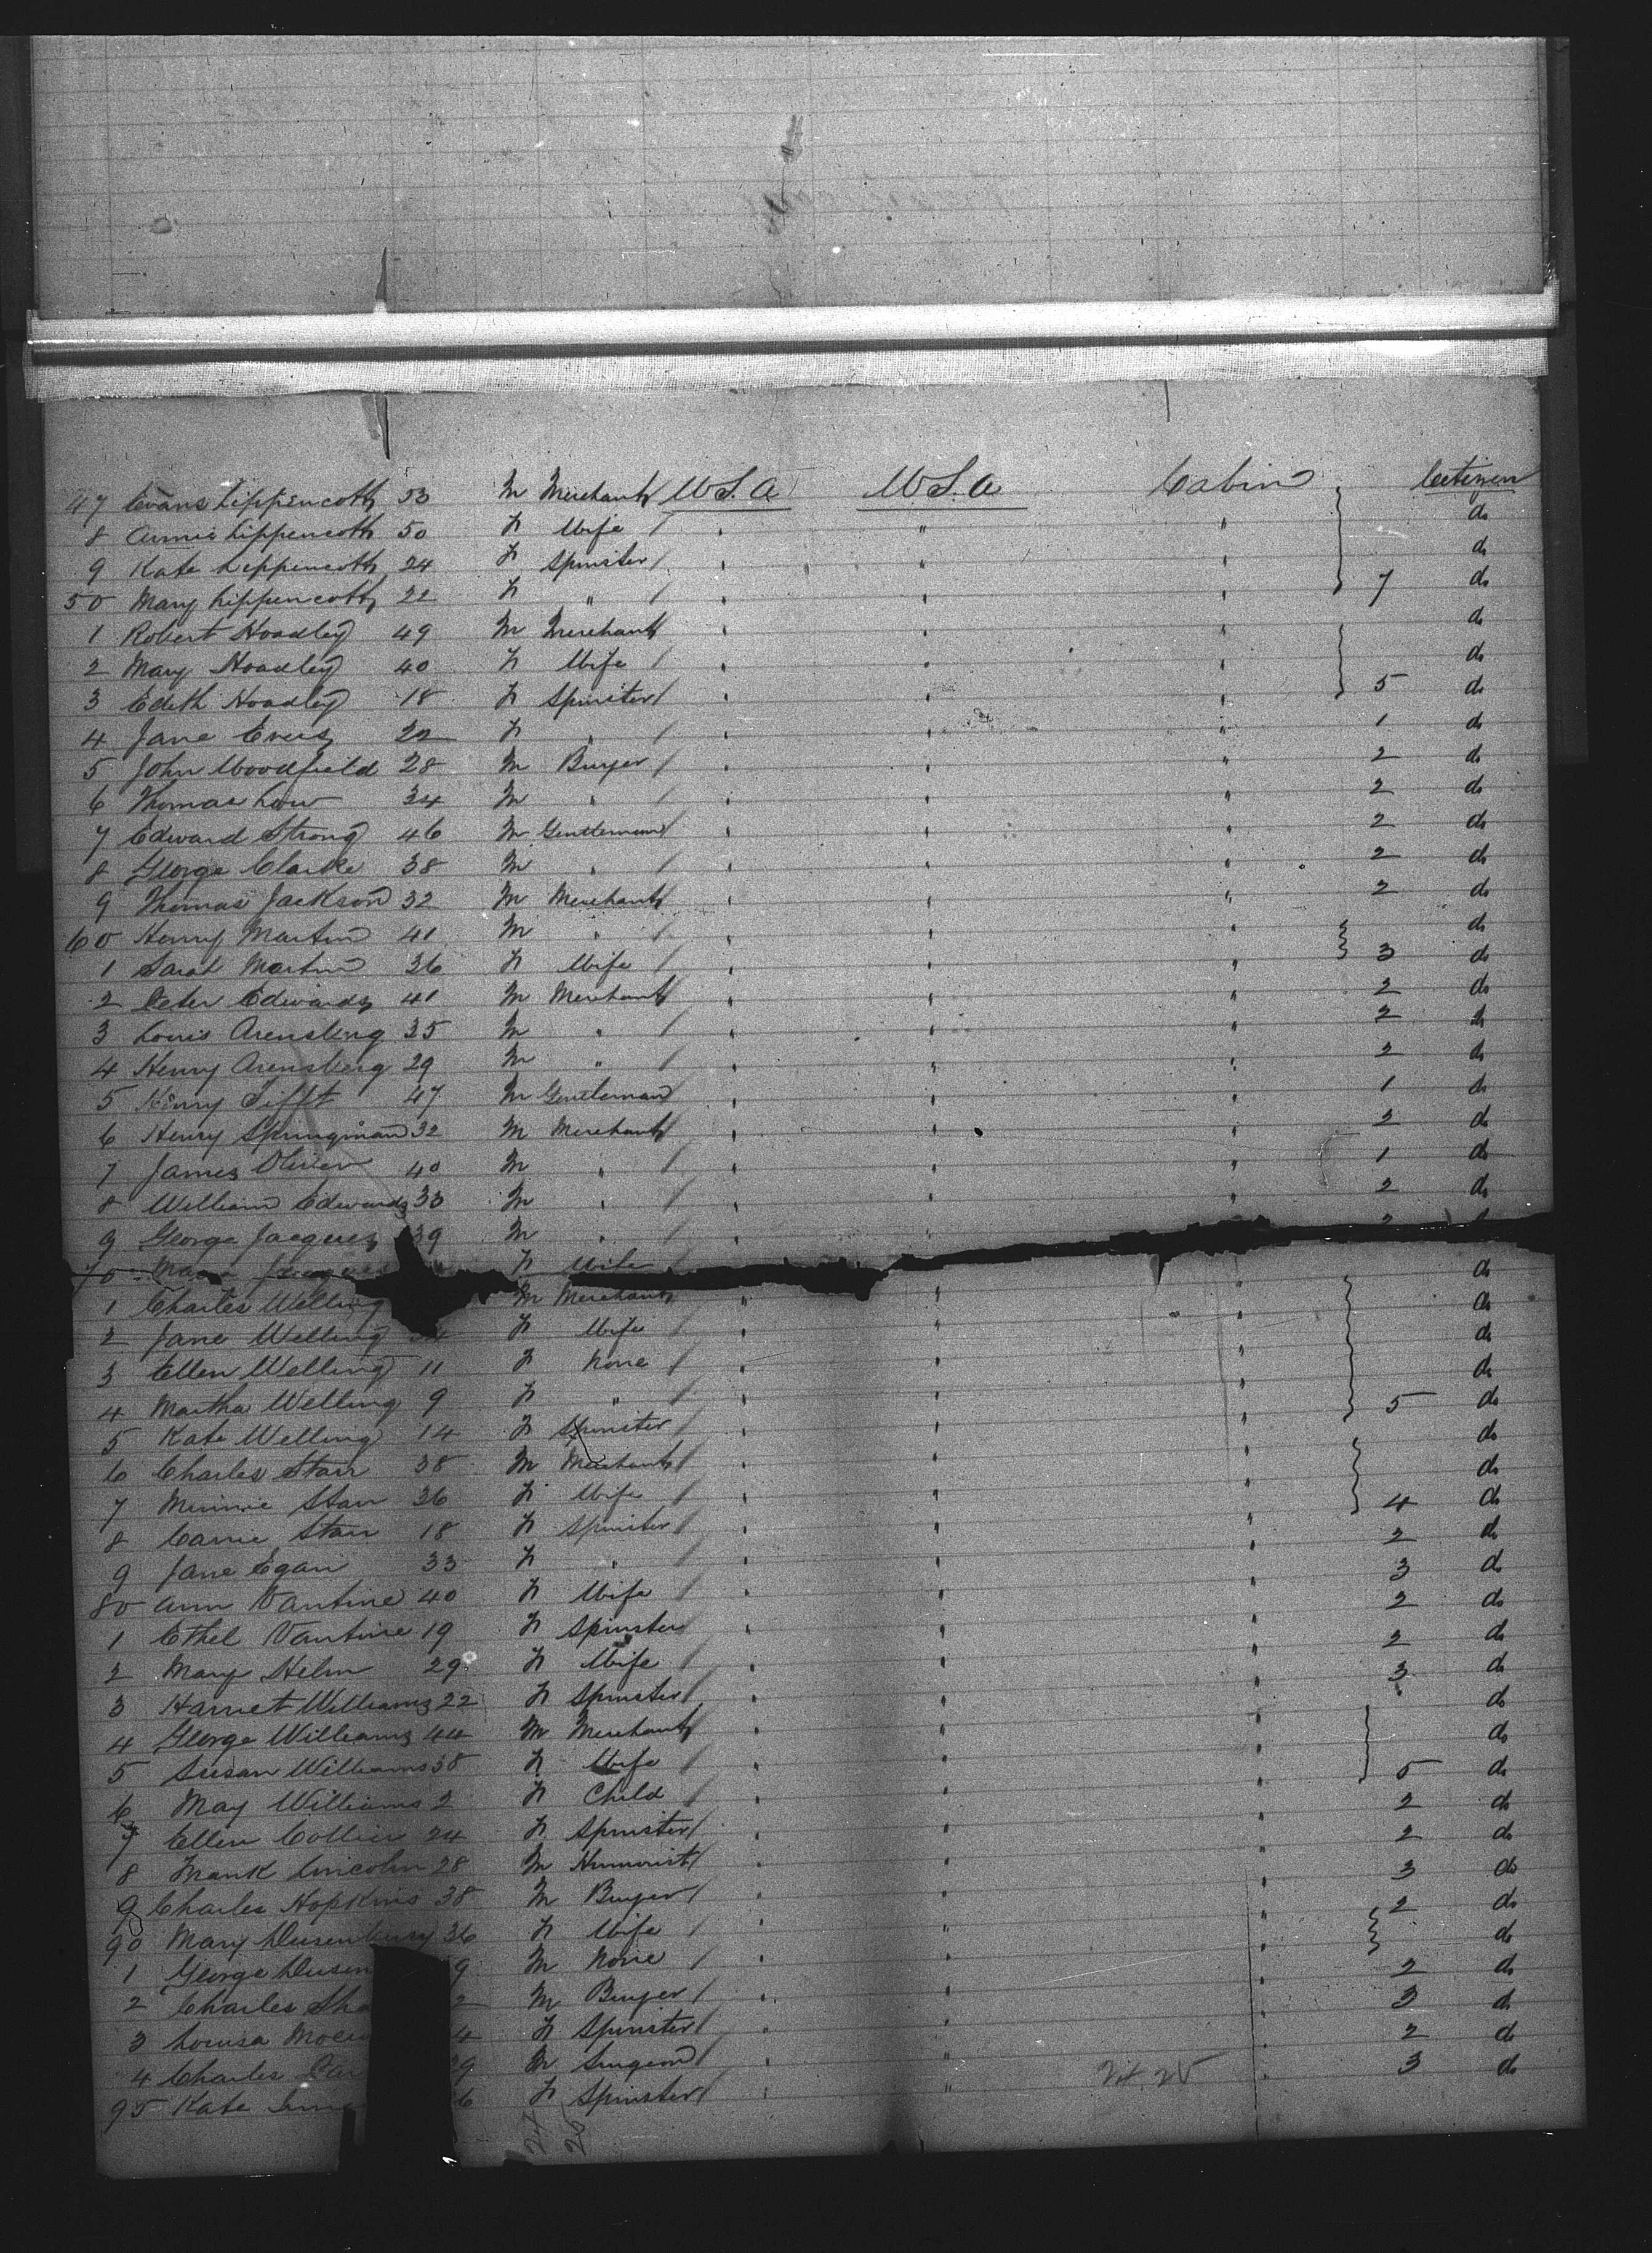 47 Evans Lippencott 53 M Merchant U.S.A U.S.A Cabin Citizen
8 Annie Lippencott 50 F Wife " " do
9 Kate Lippencott 24 F Spinster " " " do
50 Mary Lippencott 22 F " " " " 7 do
1 Robert Hoadley 49 M Merchant " " " do
2 Mary Hoadley 40 F Wife " " " do
3 Edith Hoadley 18 F Spinster " " " 5 do
4 Jane Evers 22 F " " " " 1 do
5 John Woodfield 28 M Buyer " " " 2 do
6 Thomas Low 34 M " " " " 2 do
7 Edward Strong 46 M Gentleman " " " 2 do
8 George Clarke 38 M " " " " 2 do
9 Thomas Jackson 32 M Merchant " " " 2 do
60 Henry Martin 41 M " " " " do
1 Sarah Martin 36 F Wife " " " 3 do
2 Peter Edwards 41 M Merchant " " " 2 do
3 Louis Arensberg 35 M " " " " 2 do
4 Henry Arensberg 29 M " " " " 2 do
5 Henry Tifft 47 M Gentleman " " " 1 do
6 Henry Springman 32 M Merchant " " " 2 do
7 James Oliver 40 M " " " " 1 do
8 William Edwards 33 M " " " " 2 do
9 George Jacques 39 M " " "
70 Jacques F Wife
1 Charles Welling M Merchant " " " do
2 Jane Welling F Wife " " " do
3 Ellen Welling 11 F None " " " do
4 Martha Welling 9 F " " " " do
5 Kate Welling 14 F Spinster " " " 5 do
6 Charles Starr 38 M Merchant " " " do
7 Minnie Starr 36 F Wife " " " do
8 Carrie Starr 18 F Spinster " " " 4 do
9 Jane Egan 33 F " " " " 2 do
80 Ann Vantine 40 F Wife " " " 3 do
1 Ethel Vantine 19 F Spinster " " " 2 do
2 Mary Helm 29 F Wife " " " 2 do
3 Harriet Williams 22 F Spinster " " " 3 do
4 George Williams 44 M Merchant " " " do
5 Susan Williams 38 F Wife " " " do
6 May Williams 2 F Child " " " 5 do
7 Ellen Collier 24 F Spinster " " " 2 do
8 Frank Lincoln 28 M Humorist " " " 2 do
9 Charles Hopkins 38 M Buyer " " " 3 do
90 Mary Dusenbury 36 F Wife " " " 2 do
1 George Dusen 9 M None " " " do
2 Charles Sha 2 M Buyer " " " 2 do
3 Louisa 4 F Spinster " " " 3 do
4 Charles 9 M Surgeon " " " 2 do
95 Kate 6 F Spinster " " 24.25 " 3 do
24